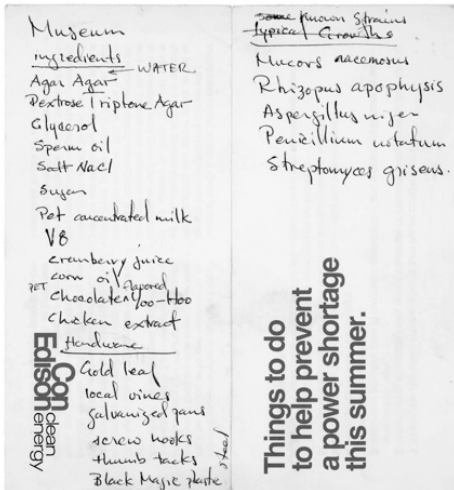 Museum
ingredients
Agar Agar ← WATER
Dextrose Triptone Agar
Glycerol
Sperm oil
Salt NaCl
Sugar
Pet concentrated milk
V8
cranberry juice
corn oil flavored
PET Chocolate Yoo-Hoo
Chicken extract
Hardware
Gold leaf
local vines
galvanized pans
screw hooks
thumb tacks steel
Black Magic plastic
Con
Edison
clean
energy
some known strains
typical Growths
Mucors racemosus
Rhizopus apophysis
Aspergillus niger
Penicillium notatum
Streptomyces griseus.
Things to do
to help prevent
a power shortage
this summer.